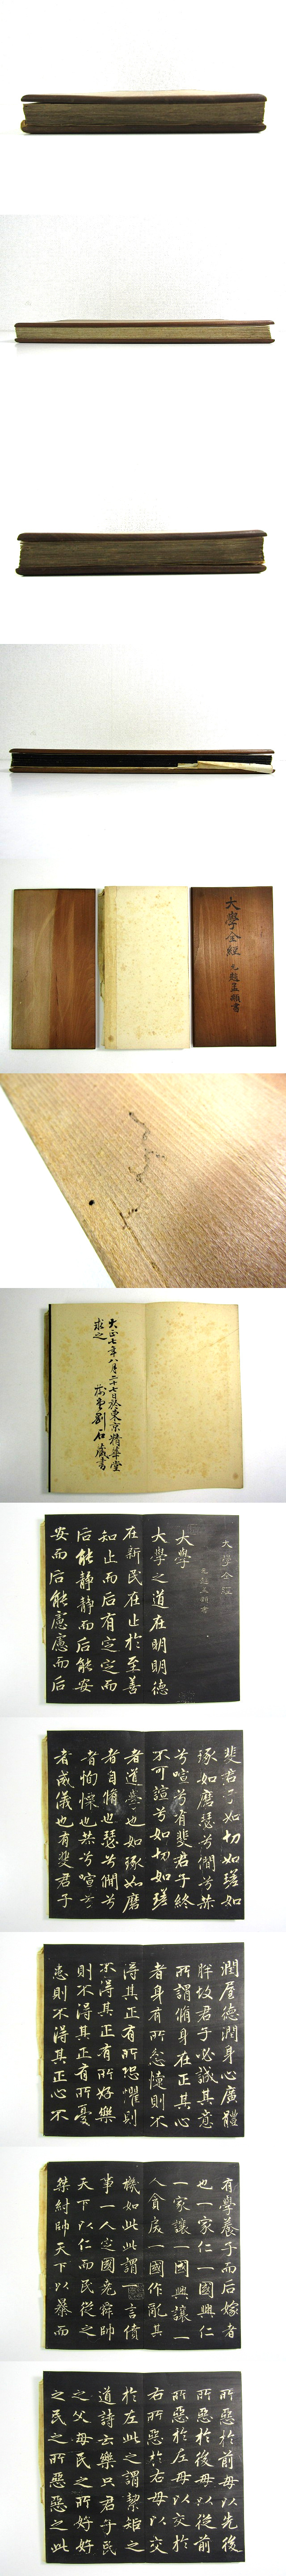 大學全經
元趙孟頫書
大正七年八月二十七日於東京精華堂
求之
劉石藏書
大學全經
元趙孟頫書
大學
大學之道在明明德
在新民在止於至善
知止而后有定定而
后能靜靜而后能安
安而后能慮慮而后
斐君子如切如磋如
琢如磨瑟兮僩兮赫
兮喧兮有斐君子終
不可諠兮如切如磋
者道學也如琢如磨
者自脩也瑟兮僩兮
者恂慄也赫兮喧兮
者威儀也有斐君子
潤屋德潤身心廣體
胖故君子必誠其意
所謂脩身在正其心
者身有所忿懥則不
得其正有所恐懼則
不得其正有所好樂
則不得其正有所憂
患則不得其正心不
有學養子而后嫁者
也一家仁一國興仁
一家讓一國興讓一
人貪戾一國作亂其
機如此此謂一言僨
事一人定國堯舜帥
天下以仁而民從之
桀紂帥天下以暴而
所惡於前毋以先後
所惡於後毋以從前
所惡於左毋以交於
右所惡於右毋以交
於左此之謂絜矩之
道詩云樂只君子民
之父母民之所好好
之民之所惡惡之此